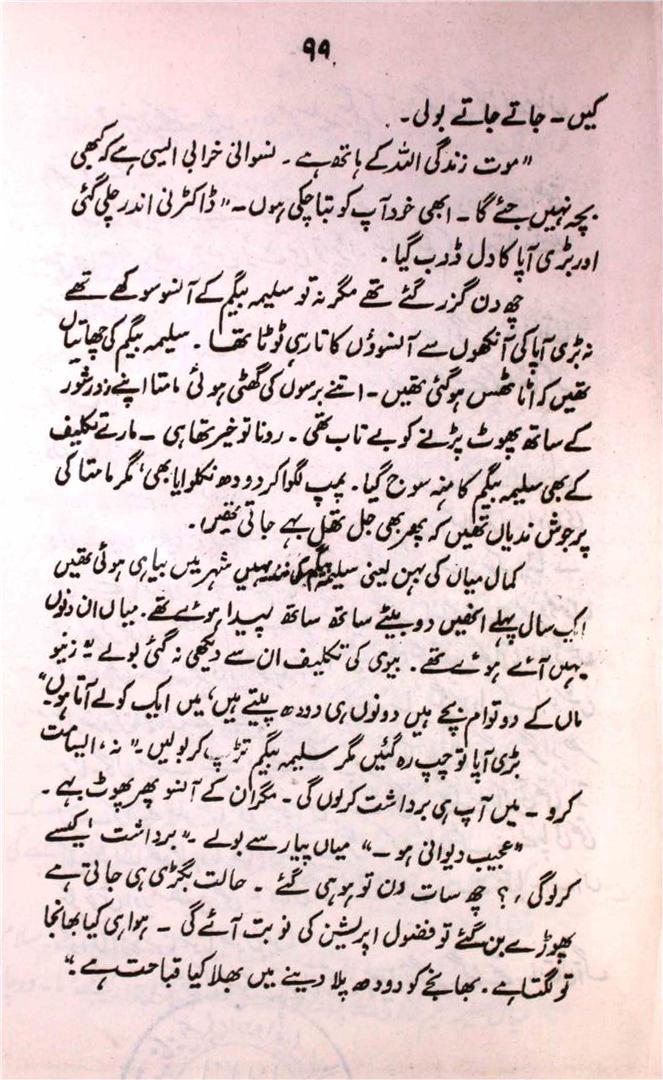 ۹۹
گیں۔ جاتے جاتے بولی۔
"موت زندگی اللہ کے ہاتھ ہے۔ نسوانی خرابی ایسی ہے کہ کبھی
بچہ نہیں جئے گا۔ ابھی خود آپ کو بتا چکی ہوں۔" ڈاکٹرنی اندر چلی گئی
اور بڑی آپا کا دل ڈوب گیا۔
چھ دن گزر گئے تھے مگر نہ تو سلیمہ بیگم کے آنسو سوکھے تھے
نہ بڑی آپا کی آنکھوں سے آنسوؤں کا تار ہی ٹوٹا تھا۔ سلیمہ بیگم کی چھاتیاں
تھیں کہ اٹا ٹھس ہو گئی تھیں۔ اتنے برسوں کی گھٹی ہوئی مامتا اپنے زور شور
کے ساتھ پھوٹ پڑنے کو بے تاب تھی۔ رونا تو خیر تھا ہی۔ مارے تکلیف
کے بھی سلیمہ بیگم کا منہ سوج گیا۔ پمپ لگوا کر دودھ نکلوایا بھی، مگر مامتا کی
پرجوش ندیاں تھیں کہ پھر بھی جل تھل بہے جاتی تھیں۔
کمال میاں کی بہن یعنی سلیمہ بیگم کی نند یہیں شہر میں بیاہی ہوئی تھیں
اک سال پہلے انھیں دو بیٹے ساتھ ساتھ پیدا ہوئے تھے۔ میاں ان دنوں
یہیں آئے ہوئے تھے۔ بیوی کی تکلیف ان سے دیکھی نہ گئی بولے "زینو
ماں کے دو توام بچے ہیں دونوں ہی دودھ پیتے ہیں، میں ایک کو لے آتا ہوں"
بڑی آپا تو چپ رہ گئیں مگر سلیمہ بیگم تڑپ کر بولیں۔ "نہ، ایسا مت
کرو۔ میں آپ ہی برداشت کر لوں گی۔ مگر ان کے آنسو پھر پھوٹ بہے۔
"عجیب دیوانی ہو۔" میاں پیار سے بولے۔ "برداشت کیسے
کر لو گی؟ چھ سات دن تو ہو ہی گئے۔ حالت بگڑی ہی جاتی ہے
پھوڑے بن گئے تو فضول اپریشن کی نوبت آئے گی۔ ہوا ہی کیا بھانجا
تو لگتا ہے۔ بھانجے کو دودھ پلا دینے میں بھلا کیا قباحت ہے۔"